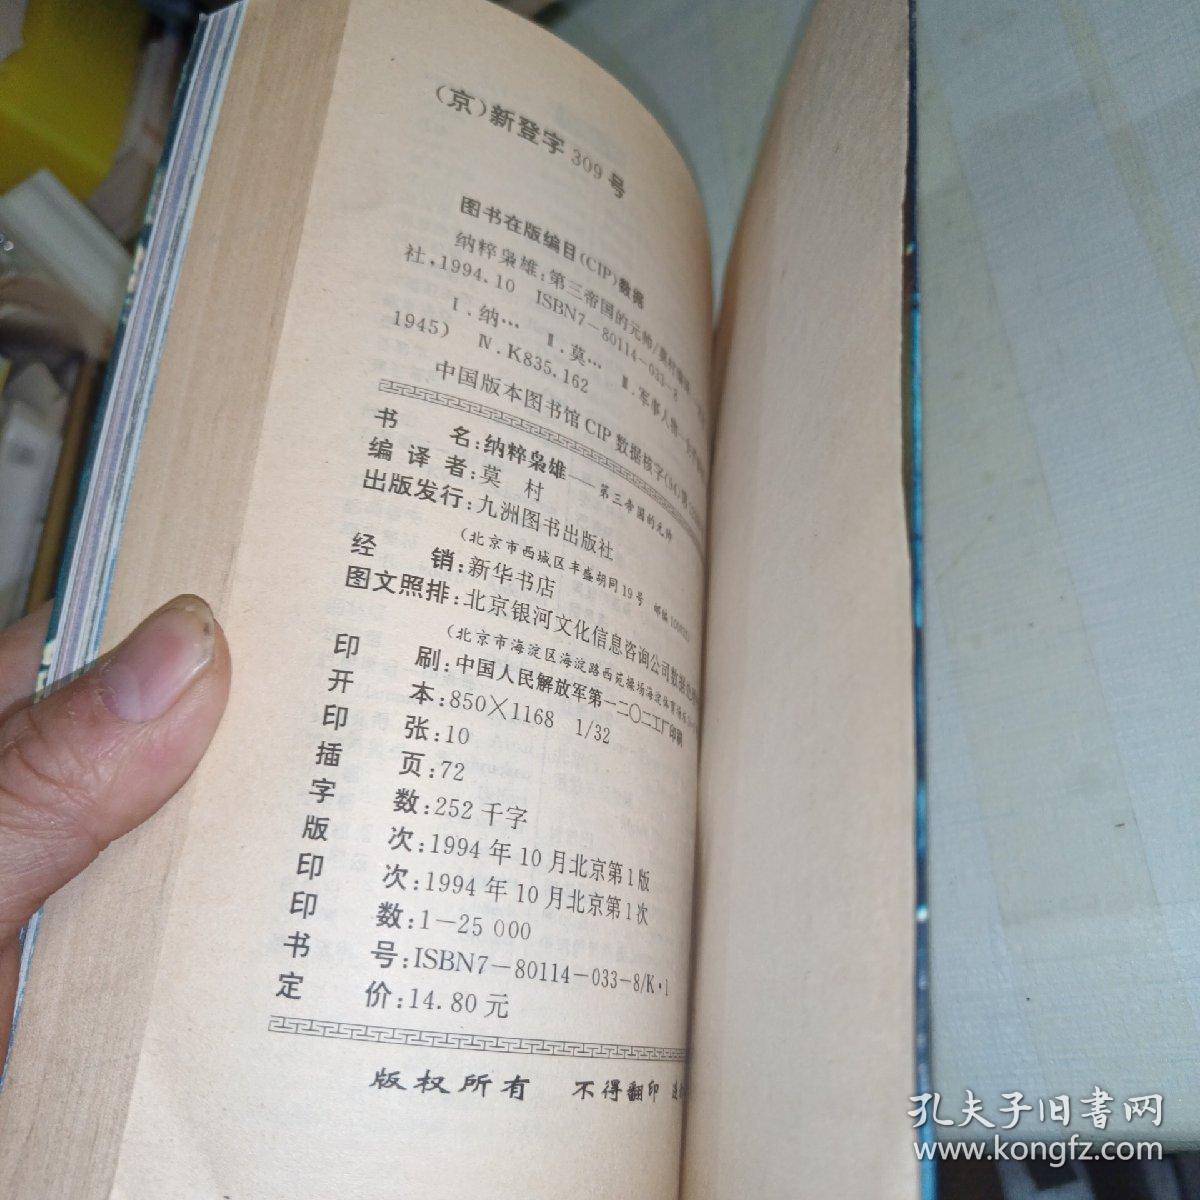 (京)新登字309号
图书在版编目(CIP)数据
纳粹枭雄:第三帝国的元帅/莫村编译
社,1994.10 ISBN7-80114-033-8
Ⅰ.纳… Ⅱ.莫… Ⅲ.军事人物
1945) Ⅳ.K835.162
中国版本图书馆CIP数据核字(94)第
书 名:纳粹枭雄——第三帝国的元帅
编译者:莫 村
出版发行:九洲图书出版社
(北京市西城区丰盛胡同19号 邮编
经 销:新华书店
图文照排:北京银河文化信息咨询公司数据
(北京市海淀区海淀路西苑操场海淀体育场
印 刷:中国人民解放军第一二〇二工厂印刷
开 本:850×1168 1/32
印 张:10
插 页:72
字 数:252千字
版 次:1994年10月北京第1版
印 次:1994年10月北京第1次
印 数:1-25 000
书 号:ISBN7-80114-033-8/K·1
定 价:14.80元
版权所有 不得翻印
孔夫子旧書网
www.kongfz.com